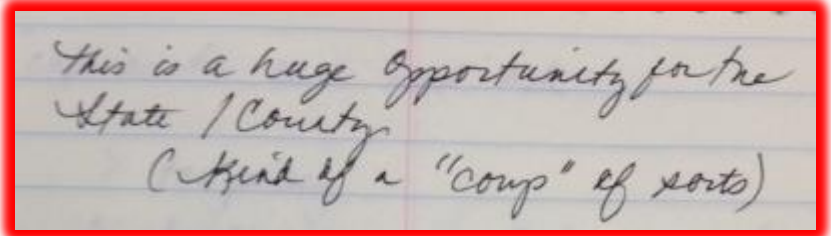 this is a huge opportunity for the
State / County
(Kind of a "coup" of sorts)